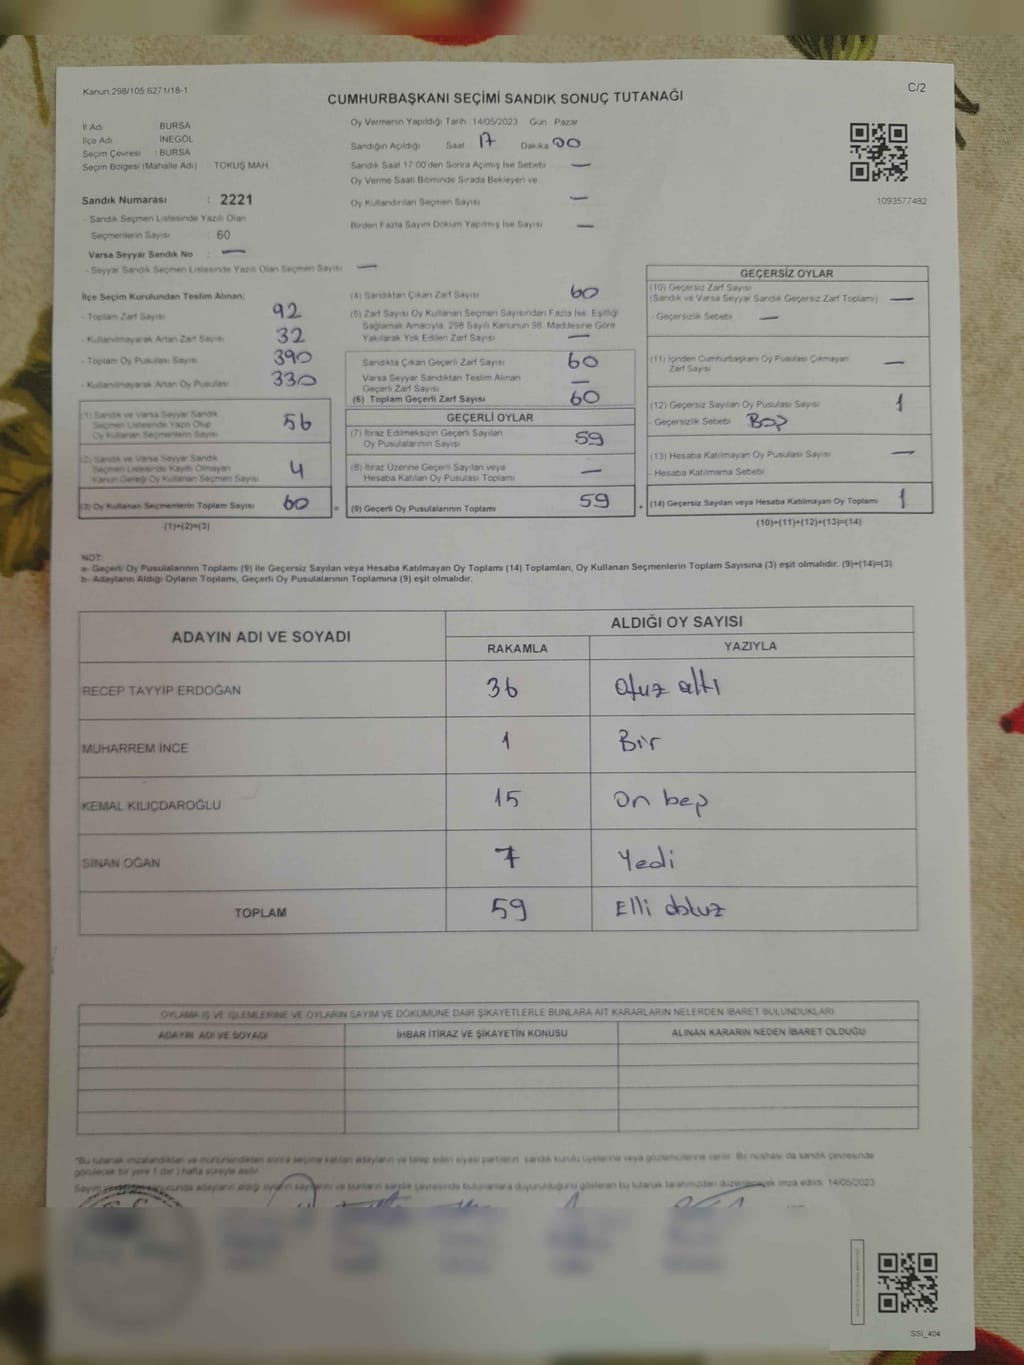 Kanun:298/105 6271/18-1
C/2
CUMHURBAŞKANI SEÇİMİ SANDIK SONUÇ TUTANAĞI
İl Adı BURSA
İlçe Adı İNEGÖL
Seçim Çevresi : BURSA
Seçim Bölgesi (Mahalle Adı) TOKUŞ MAH.
Sandık Numarası : 2221
- Sandık Seçmen Listesinde Yazılı Olan
Seçmenlerin Sayısı : 60
Varsa Seyyar Sandık No : —
- Seyyar Sandık Seçmen Listesinde Yazılı Olan Seçmen Sayısı —
Oy Vermenin Yapıldığı Tarih 14/05/2023 Gün Pazar
Sandığın Açıldığı Saat 17 Dakika 00
Sandık Saat 17:00'den Sonra Açımış İse Sebebi —
Oy Verme Saati Bitiminde Sırada Bekleyen ve
Oy Kullandırılan Seçmen Sayısı —
Birden Fazla Sayım Döküm Yapılmış İse Sayısı —
1093577482
İlçe Seçim Kurulundan Teslim Alınan;
- Toplam Zarf Sayısı 92
- Kullanılmayarak Artan Zarf Sayısı 32
- Toplam Oy Pusulası Sayısı 390
- Kullanılmayarak Artan Oy Pusulası 330
(1) Sandık ve Varsa Seyyar Sandık
Seçmen Listesinde Yazılı Olup
Oy Kullanan Seçmenlerin Sayısı 56
(2) Sandık ve Varsa Seyyar Sandık
Seçmen Listesinde Kayıtlı Olmayan
Kanun Gereği Oy Kullanan Seçmen Sayısı 4
(3) Oy Kullanan Seçmenlerin Toplam Sayısı 60
(1)+(2)=(3)
(4) Sandıktan Çıkan Zarf Sayısı 60
(5) Zarf Sayısı Oy Kullanan Seçmen Sayısından Fazla İse, Eşitliği
Sağlamak Amacıyla, 298 Sayılı Kanunun 98. Maddesine Göre
Yakılarak Yok Edilen Zarf Sayısı —
Sandıkta Çıkan Geçerli Zarf Sayısı 60
Varsa Seyyar Sandıktan Teslim Alınan
Geçerli Zarf Sayısı —
(6) Toplam Geçerli Zarf Sayısı 60
GEÇERLİ OYLAR
(7) İtiraz Edilmeksizin Geçerli Sayılan
Oy Pusulalarının Sayısı 59
(8) İtiraz Üzerine Geçerli Sayılan veya
Hesaba Katılan Oy Pusulası Toplamı —
= (9) Geçerli Oy Pusulalarının Toplamı 59
GEÇERSİZ OYLAR
(10) Geçersiz Zarf Sayısı
(Sandık ve Varsa Seyyar Sandık Geçersiz Zarf Toplamı) —
- Geçersizlik Sebebi —
(11) İçinden Cumhurbaşkanı Oy Pusulası Çıkmayan
Zarf Sayısı —
(12) Geçersiz Sayılan Oy Pusulası Sayısı 1
- Geçersizlik Sebebi Boş
(13) Hesaba Katılmayan Oy Pusulası Sayısı —
- Hesaba Katılmama Sebebi
+ (14) Geçersiz Sayılan veya Hesaba Katılmayan Oy Toplamı 1
(10)+(11)+(12)+(13)=(14)
NOT:
a- Geçerli Oy Pusulalarının Toplamı (9) ile Geçersiz Sayılan veya Hesaba Katılmayan Oy Toplamı (14) Toplamları, Oy Kullanan Seçmenlerin Toplam Sayısına (3) eşit olmalıdır. (9)+(14)=(3)
b- Adayların Aldığı Oyların Toplamı, Geçerli Oy Pusulalarının Toplamına (9) eşit olmalıdır.
ADAYIN ADI VE SOYADI ALDIĞI OY SAYISI
RAKAMLA YAZIYLA
RECEP TAYYİP ERDOĞAN 36 Otuz altı
MUHARREM İNCE 1 Bir
KEMAL KILIÇDAROĞLU 15 On beş
SİNAN OĞAN 7 Yedi
TOPLAM 59 Elli dokuz
OYLAMA İŞ VE İŞLEMLERİNE VE OYLARIN SAYIM VE DÖKÜMÜNE DAİR ŞİKAYETLERLE BUNLARA AİT KARARLARIN NELERDEN İBARET BULUNDUKLARI
ADAYIN ADI VE SOYADI İHBAR İTİRAZ VE ŞİKAYETİN KONUSU ALINAN KARARIN NEDEN İBARET OLDUĞU
"Bu tutanak imzalandıktan ve mühürlendikten sonra seçime katılan adayların ve talep eden siyasi partilerin sandık kurulu üyelerine veya gözlemcilerine verilir. Bir nüshası da sandık çevresinde
görülecek bir yere 1 (bir) hafta süreyle asılır.
adayların aldığı oyların sayılarını ve bunların sandık çevresinde bulunanlara duyurulduğunu gösteren bu tutanak tarafımızdan düzenlenerek imza edildi. 14/05/2023
SSİ_404